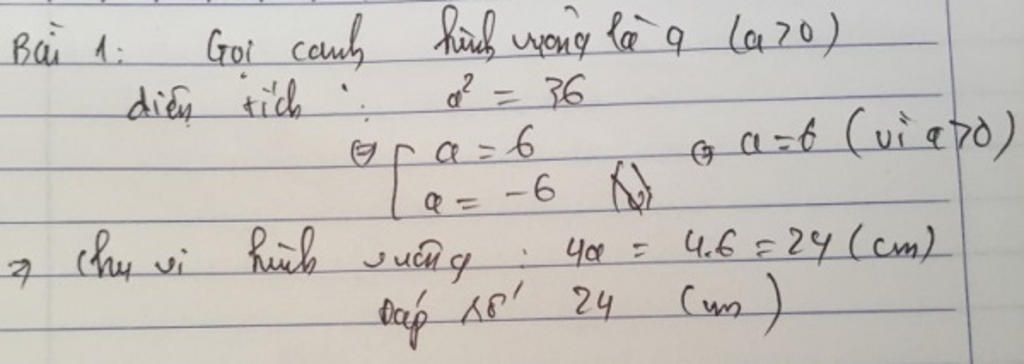 Bài 1: Gọi cạnh hình vuông là a (a>0)
diện tích : a² = 36
⇔ [ a = 6 ⇔ a = 6 (vì a>0)
a = -6
⇒ Chu vi hình vuông : 4a = 4.6 = 24 (cm)
Đáp số 24 (cm)